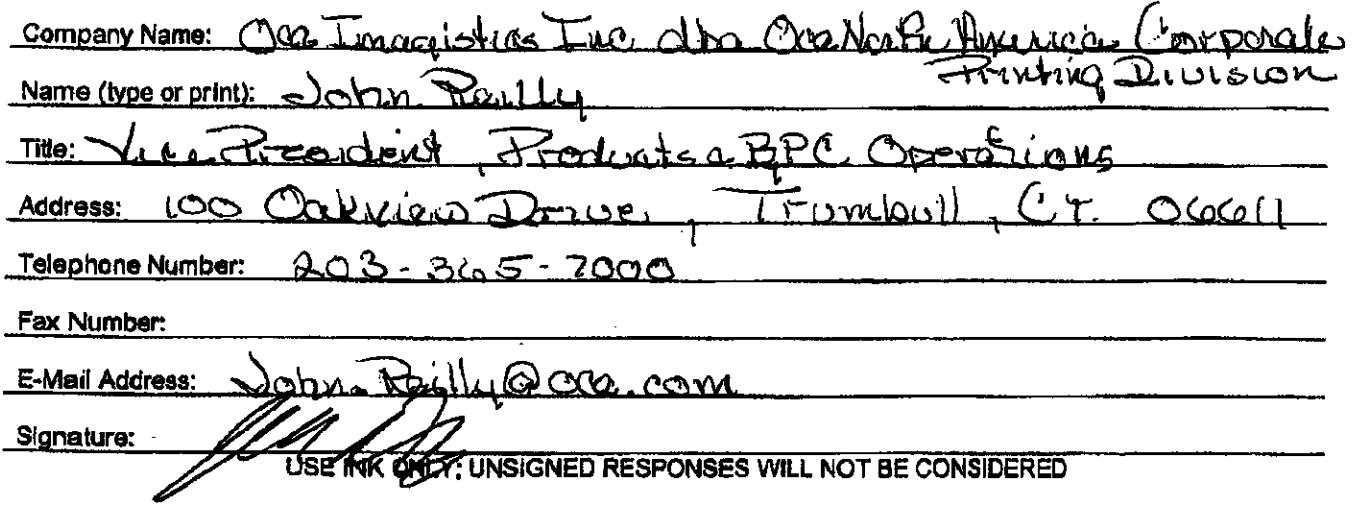 Company Name: Oce Imagistics Inc. dba Oce North America Corporate
Printing Division
Name (type or print): John Reilly
Title: Vice President, Products & BPC Operations
Address: 100 Oakview Drive, Trumbull, CT. 06611
Telephone Number: 203-365-7000
Fax Number:
E-Mail Address: John.Reilly@oce.com
Signature:
USE INK ONLY: UNSIGNED RESPONSES WILL NOT BE CONSIDERED